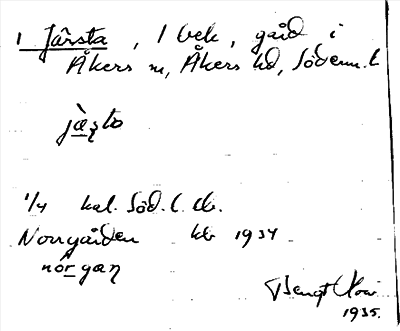 1 Järsta, 1 bek, gård i
Åkers sn, Åkers hd, Söderm. l
jàṣta
1/4 kal. Söd. l. cb.
Norrgården kb 1934
nórgaṇ
Bengt
1935.